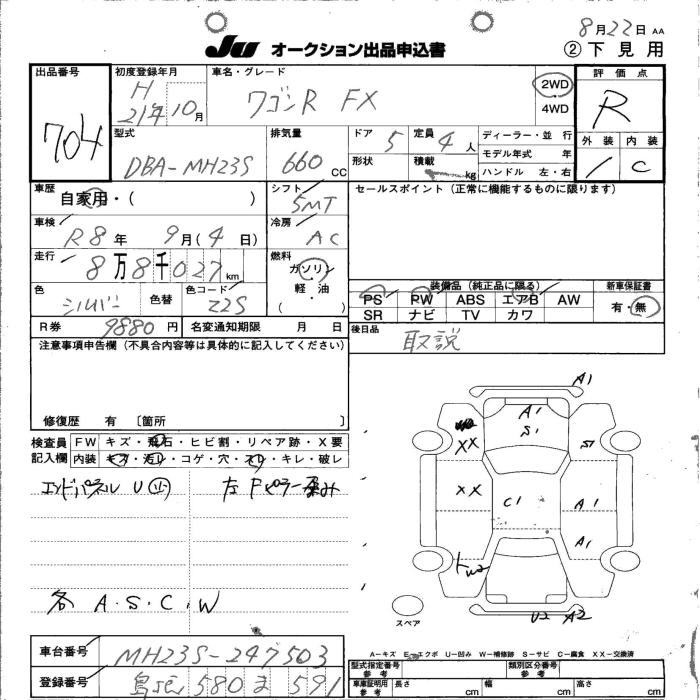 8月22日 AA
JU オークション出品申込書 ②下見用
出品番号 704
初度登録年月 H 21年10月
車名・グレード ワゴンR FX
2WD
4WD
評価点 R
外装 内装 C
型式 DBA-MH23S
排気量 660 CC
ドア 5
形状
定員 4人
積載 kg
ディーラー・並行
モデル年式 年
ハンドル 左・右
車歴 自家用・( )
シフト 5MT
セールスポイント(正常に機能するものに限ります)
車検 R8年 9月(4日)
冷房 AC
走行 8万8千027km
燃料 ガソリン
軽・油
( )
色 シルバー 色替
色コード Z2S
装備品(純正品に限る)
PS PW ABS エアB AW
SR ナビ TV カワ
新車保証書
有・無
R券 9880円 名変通知期限 月 日
後日品 取説
注意事項申告欄(不具合内容等は具体的に記入してください)
修復歴 有 〔箇所 〕
検査員記入欄
FW キズ・飛石・ヒビ割・リペア跡・X要
内装 キズ・汚レ・コゲ・穴・スレ・キレ・破レ
エンドパネル U 左Fピラー歪み
各 A.S.C.W
A1
A1
S1
XX
S1
XX
C1
A1
A1
U2 A2
スペア
A-キズ E-エクボ U-凹み W-補修跡 S-サビ C-腐食 XX-交換済
車台番号 MH23S-247503
登録番号 580 ま 591
型式指定番号 参考
類別区分番号 参考
車庫証明用 参考 長さ cm 幅 cm 高さ cm